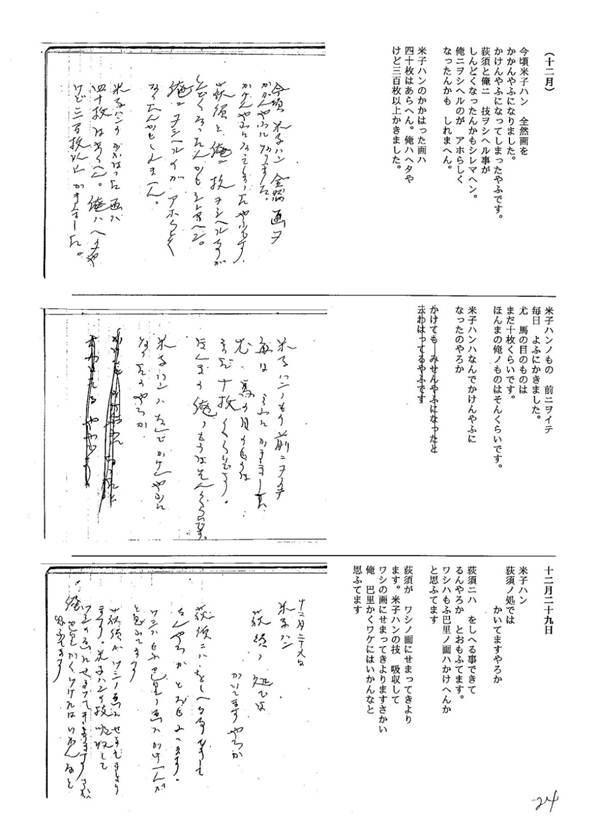 (十二月)
今頃米子ハン　全然画を
かかんやふになりました。
かけんやふになってしまったやふです。
荻須と俺ニ　技ヲシヘル事が
しんどくなったんかもシレマヘン。
俺ニヲシヘルのが　アホらしく
なったんかも　しれまへん。
米子ハンのかかはった画ハ
四十枚はあらへん。俺ハヘタや
けど三百枚以上かきました。
今頃　米子ハン　全然　画ヲ
かかんやふになりました。
かけんやふになってしまったやふです。
荻須と俺ニ技ヲシヘル事が
しんどくなったんかもシレマヘン。
俺ニヲシヘルのが　アホらしく
なったんかもしれまへん。
米子ハンのかかはった画ハ
四十枚はあらへん。俺ハヘタや
けど三百枚以上かきました。
米子ハンノもの　前ニヲイテ
毎日　よふにかきました。
尤　馬の目のものは
まだ十枚くらいです。
ほんまの俺ノものはそんくらいです。
米子ハンハなんでかけんやふに
なったのやろか
かけても―みせんやふになったと
云わはってるやふです
米子ハンノもの前ニヲイテ
毎日　よふにかきました。
尤　馬の目のものは
まだ十枚くらいです。
ほんまの俺ノものはそんくらいです。
米子ハンハなんでかけんやふに
なったのやろか
十二月二十九日
米子ハン
荻須ノ処では
かいてますやろか
荻須ニハ　をしへる事できて
るんやろか　とおもふてます。
ワシハもふ巴里ノ画ハかけへんか
と思ふてます
荻須が　ワシノ画にせまってきより
ます。米子ハンの技　吸収して
ワシの画にせまってきよりますさかい
俺　巴里かくワケにはいかんなと
思ふてます
十二月二十九日
米子ハン
荻須ノ処では
かいてますやろか
荻須ニハをしへる事できて
るんやろかとおもふてます。
ワシハもふ巴里ノ画ハかけへんか
と思ふてます
荻須がワシノ画にせまってきより
ます。米子ハンの技吸収して
ワシの画にせまってきよりますさかい
俺　巴里かくワケにはいかんなと
思ふてます
24